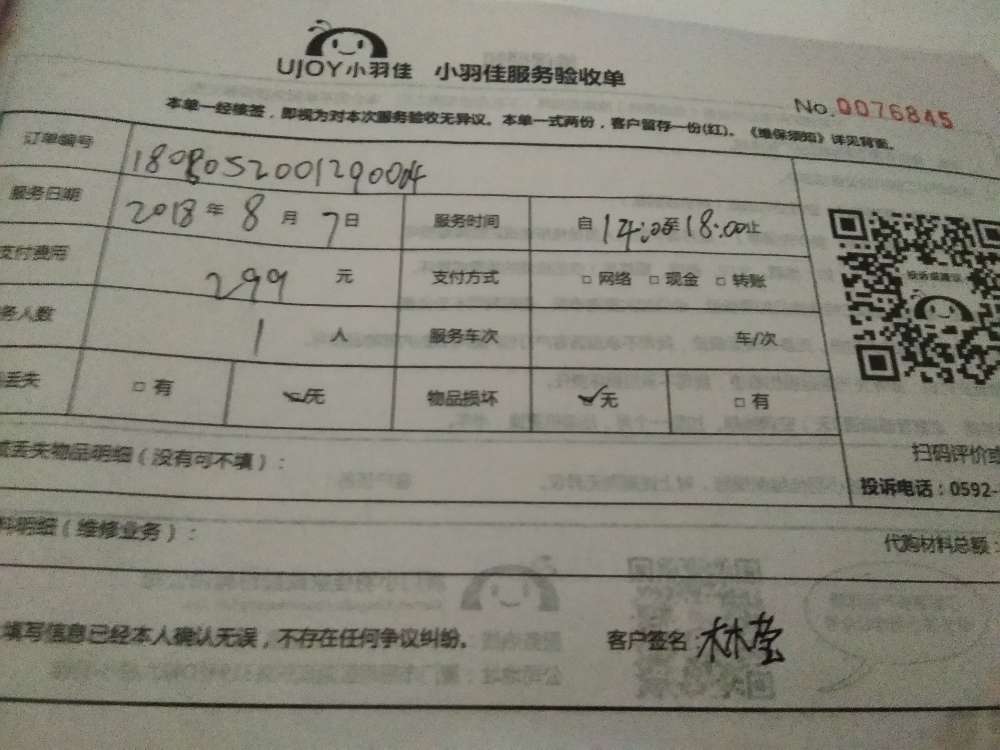 UJOY小羽佳 小羽佳服务验收单
No.0076845
本单一经核签，即视为对本次服务验收无异议。本单一式两份，客户留存一份(红)。《维保须知》详见背面。
订单编号 1808052001290004
服务日期 2018年8月7日 服务时间 自14:00至18:00止
支付费用 299元 支付方式 □网络 □现金 □转账
务人数 1人 服务车次 车/次
丢失 □有 ✓无 物品损坏 ✓无 □有
丢失物品明细（没有可不填）：
扫码评价或
投诉电话：0592-
料明细（维修业务）：
代购材料总额：
填写信息已经本人确认无误，不存在任何争议纠纷。 客户签名：林莹